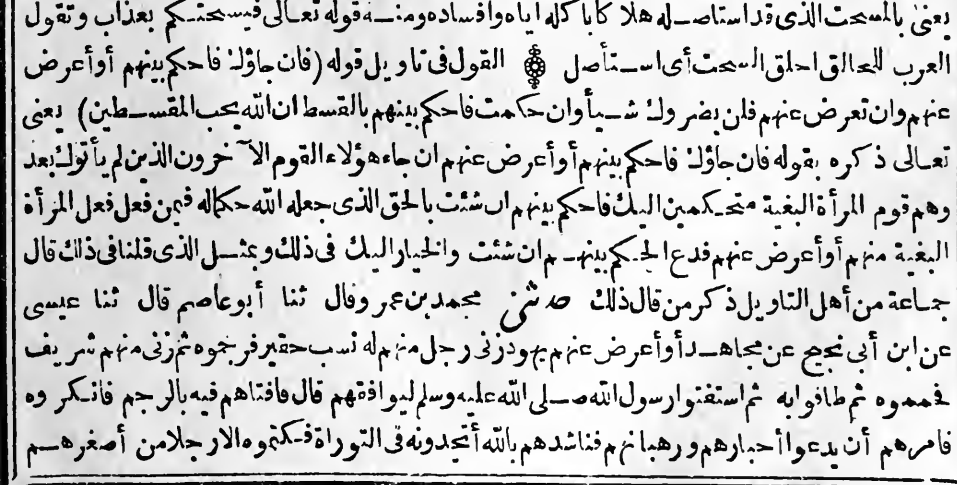 يعنى بالمسحت الذى قد استاصله هلاكا باكله اياه وافساده ومنه قوله تعالى فيسحتكم بعذاب وتقول
العرب للحالق احلق السحت أى استأصل ۞ القول فى تاويل قوله (فان جاؤك فاحكم بينهم أوأعرض
عنهم وان تعرض عنهم فلن يضروك شيأ وان حكمت فاحكم بينهم بالقسط ان الله يحب المقسطين) يعنى
تعالى ذكره بقوله فان جاؤك فاحكم بينهم أوأعرض عنهم ان جاء هؤلاء القوم الآخرون الذين لم يأتوك بعد
وهم قوم المرأة البغية متحكمين اليك فاحكم بينهم ان شئت بالحق الذى جعله الله حكما له فيمن فعل فعل المرأة
البغية منهم أوأعرض عنهم فدع الحكم بينهم ان شئت والخيار اليك فى ذلك وبمثل الذى قلنا فى ذلك قال
جماعة من أهل التاويل ذكر من قال ذلك حدثنى محمد بن عمر وقال ثنا أبو عاصم قال ثنا عيسى
عن ابن أبى نجيح عن مجاهد أوأعرض عنهم يهود زنى رجل منهم له نسب حقير فرجموه ثم زنى منهم شريف
فحمموه ثم طافوا به ثم استفتوا رسول الله صلى الله عليه وسلم ليوافقهم قال فافتاهم فيه بالرجم فانكروه
فامرهم أن يدعوا أحبارهم ورهبانهم فناشدهم بالله أتجدونه فى التوراة فكتموه الا رجلا من أصغرهم